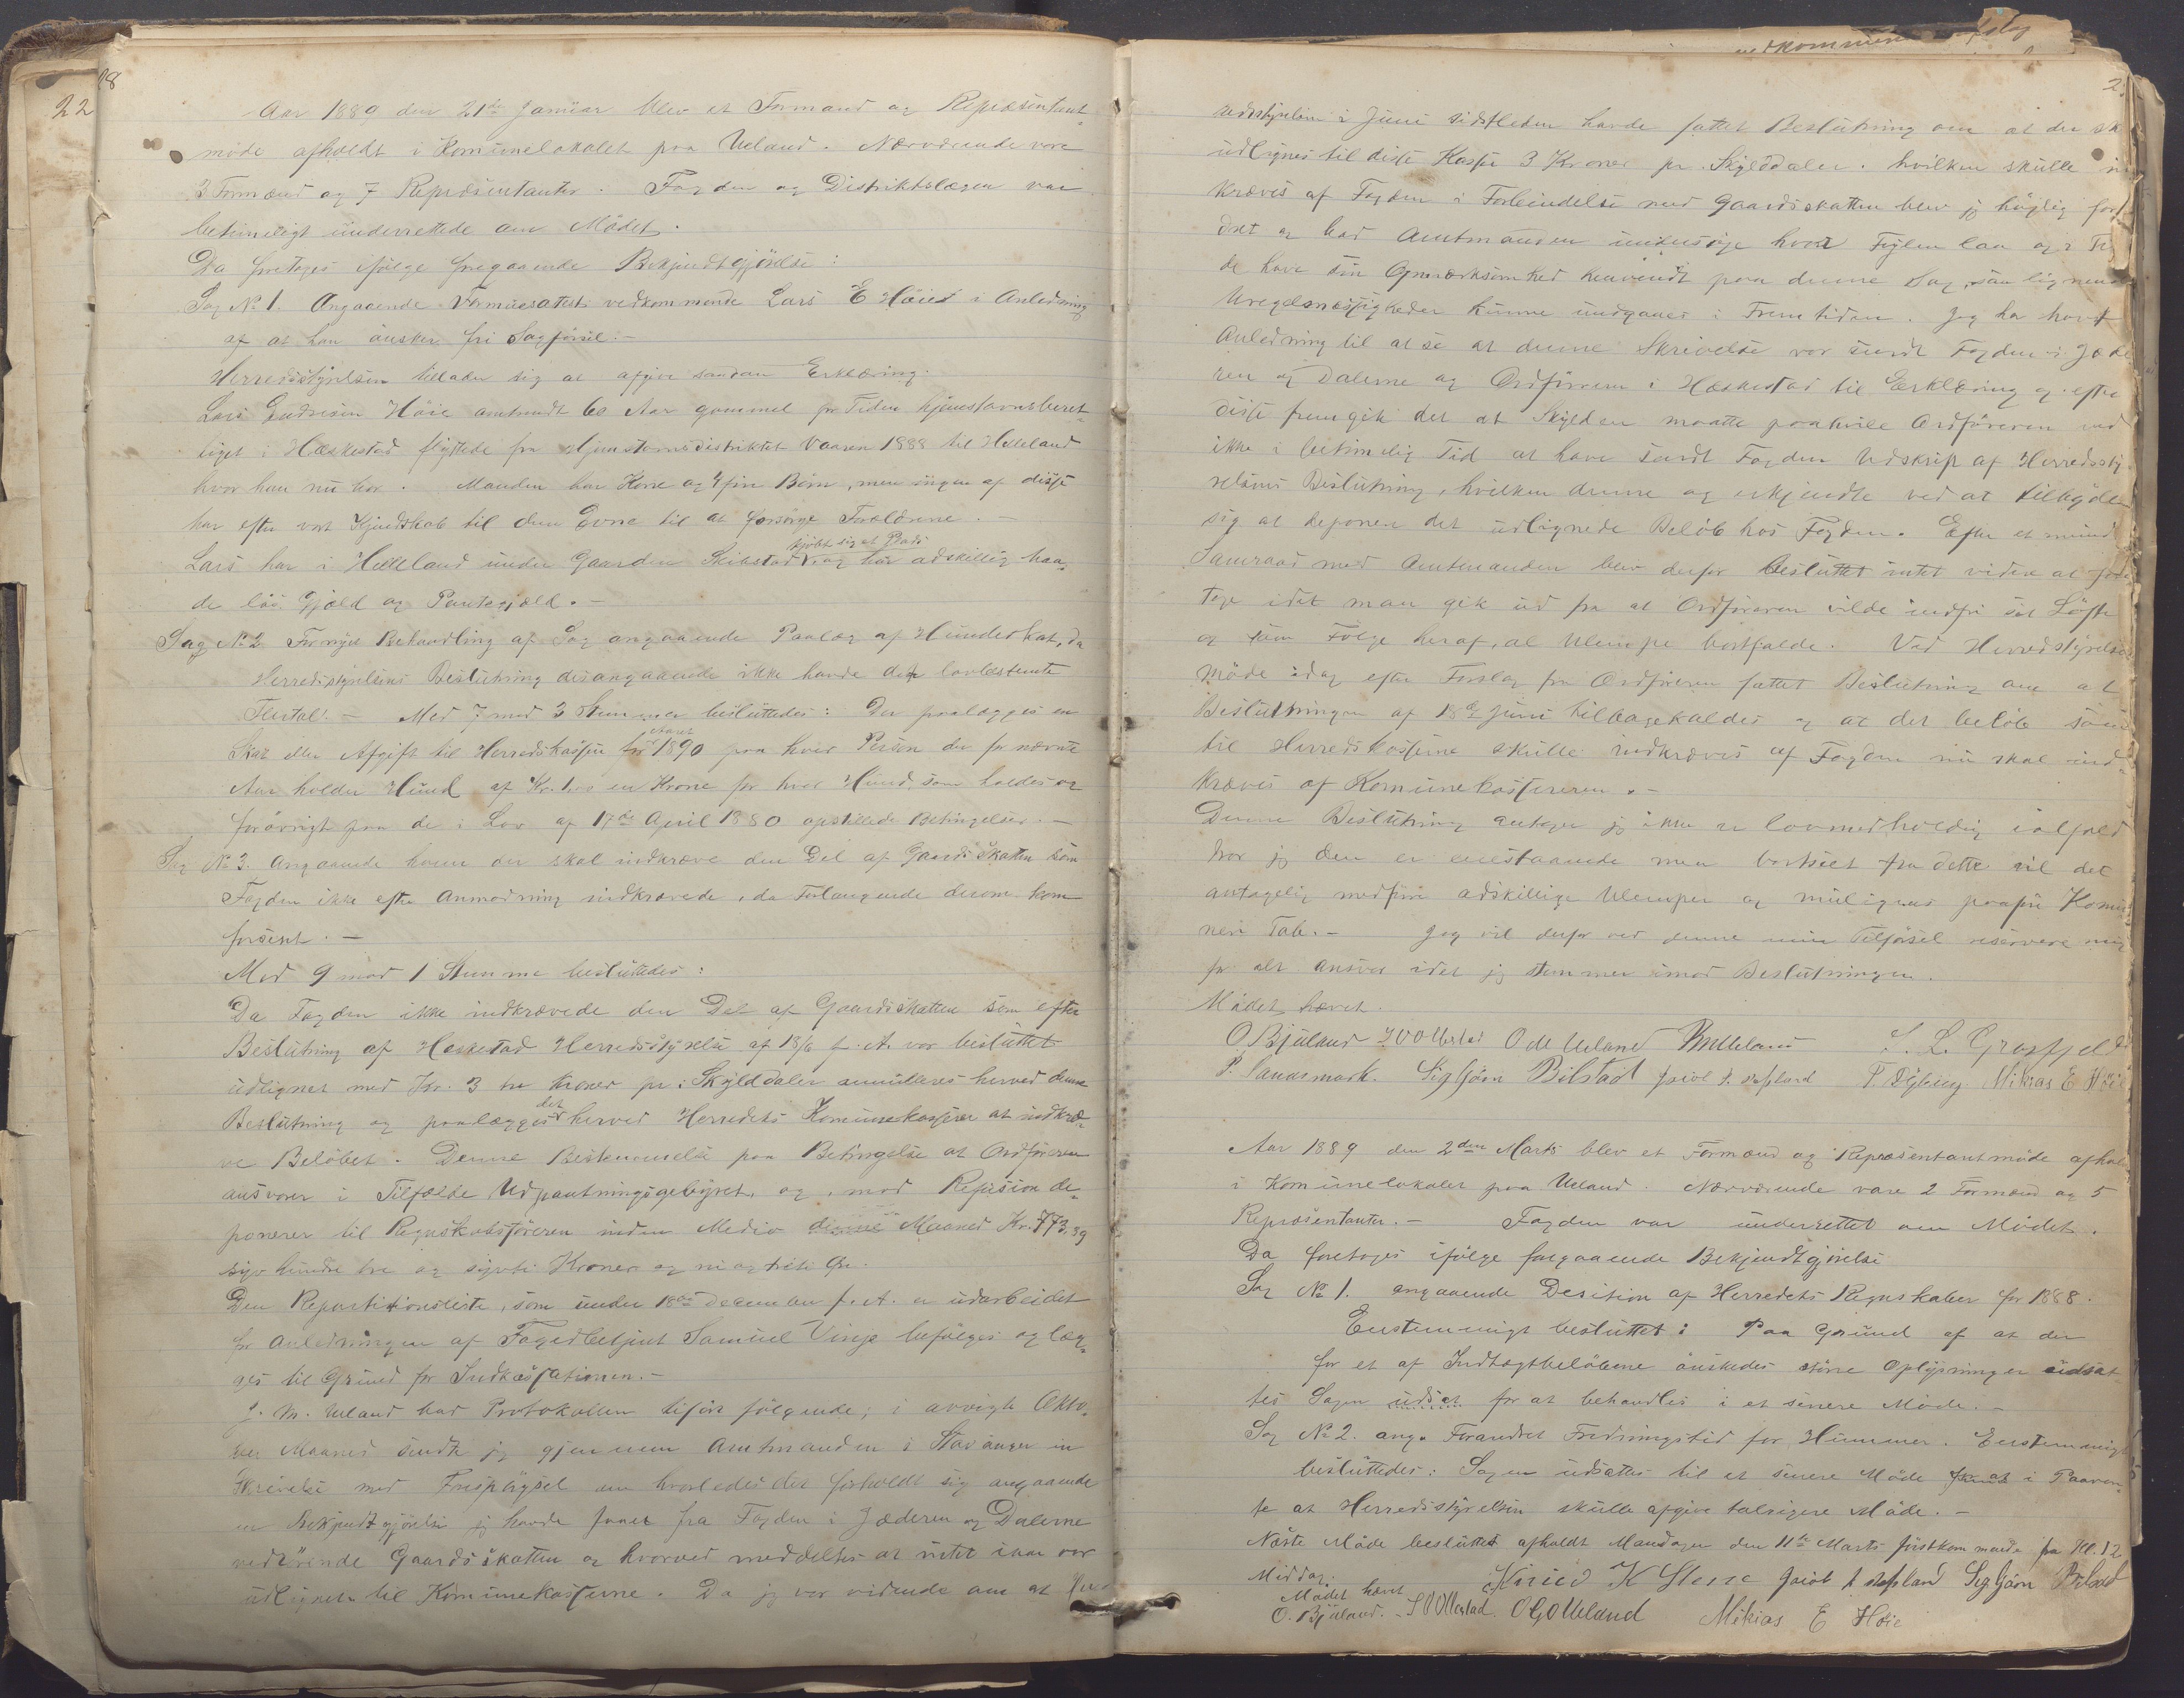 28
22
Aar 1889 den 21de Januar blev et Formand og Repræsentant-
möde afholdt i Komunelokalet paa Ueland. Nærværende vare
3 Formænd og 7 Repræsentanter. Fogden og Distriktslægen var
betimeligt underrettede om Mödet.
Da foretoges ifölge foregaaende Bekjendtgjörelse:
Sag No 1. Angaaende Formuesattest vedkommende Lars E Höie i Anledning
af at han önsker fri Sagförsel.-
Herredsstyrelsen tillader sig at afgive saadan Erklæring.
Lars Endresen Höie omtrendt 60 Aar gammel for Tiden hjemstavnsberet-
tiget i Heskestad flyttede fra Hjemstavnsdistriktet Vaaren 1888 til Helleland
hvor han nu bor. Manden har Kone og 4 fire Börn, men ingen af disse
har efter vort Kjendskab til dem Evne til at forsörge Forældrene.-
kjöbt sig et Plads
Lars har i Helleland under Gaarden Skibstad og har adskillig baa-
de lös Gjæld og Pantegjæld.-
Sag No 2. Fornyet Behandling af Sag angaaende Paalæg af Hundeskat, da
Herredsstyrelsens Beslutning desangaaende ikke havde det lovbestemte
Flertal.- Med 7 mod 3 Stemmer besluttedes: Der paalægges en
Aaret
Skat eller Afgift til Herredskassen for 1890 paa hver Person der for nævnte
Aar holder Hund af Kr. 1,00 en Krone for hver Hund som holdes og
forövrigt paa de i Lov af 17de April 1880 opstillede Betingelser.-
Sag No 3. Angaaende hvem der skal indkræve den Del af Gaardsskatten som
Fogden ikke efter Anmodning indkrævede, da Forlangende derom kom
forsent.-
Med 9 mod 1 Stemme besluttedes:
Da Fogden ikke indkrævede den Del af Gaardsskatten som efter
Beslutning af Heskestad Herredsstyrelse af 18/6 f. A. var besluttet
udlignet med Kr. 3 tre Kroner pr. Skylddaler annulleres herved denne
det
Beslutning og paalægges herved Herredets Komunekasserer at indkræ-
ve Belöbet. Denne Bestemmelse paa Betingelse at Ordföreren
ansvarer i Tilfælde Udpantningsgebyret, og, mod Refusion de-
ponerer til Regnskabsföreren inden Medio denne Maaned Kr. 773,39
syv hundre tre og sytti Kroner og ni og treti Öre.
Den Repartitionsliste, som under 18de December f. A. er udarbeidet
for Anledningen af Fogedbetjent Samuel Vinje befölges og læg-
ges til Grund for Indkassationen.-
J. M. Ueland bad Protokollen tilföre fölgende; i avvigte Okto-
ber Maaned sendte jeg gjennem Amtmanden i Stavanger en
Skrivelse med Forespörgsel om hvorledes det forholdt sig angaaende
en Bekjendtgjörelse jeg havde faaet fra Fogden i Jæderen og Dalerne
vedrörende Gaardsskatten og hvorved meddeltes at intet iaar var
udlignet til Komunekasserne. Da jeg var vidende om at Her
redsstyrelsen i Juni sidstleden havde fattet Beslutning om at der sk
udlignes til disse Kasser 3 Kroner pr. Skylddaler. hvilken skulle in
kræves af Fogden i Forbindelse med Gaardsskatten blev jeg höylig for
dret og bad Amtmanden undersöge hvor Fejlen laa og i Til
de have sin Opmærksomhed henvendt paa denne Sag, saa lignende
Uregelmæssigheder kunne undgaaes i Fremtiden. Jeg har havt
Anledning til at se at denne Skrivelse var sendt Fogden i Jæde
ren og Dalerne og Ordföreren i Heskestad til Erklæring og efter
disse fremgik det at Skylden maatte paahvile Ordföreren ved
ikke i betimelig Tid at have sendt Fogden Udskrift af Herredssty
relsens Beslutning, hvilken denne og erkjendte ved at tilbyde
sig at deponere det udlignede Belöb hos Fogden. Efter et mund
Samraad med Amtmanden blev derfor besluttet intet videre at fore
tage idet man gik ud fra at Ordföreren vilde indfri sit Löfte
og som Fölge heraf, al Ulempe bortfalde. Ved Herredsstyrelses
möde idag efter Forslag fra Ordföreren fattet Beslutning om at
Beslutningen af 18de Juni tilbagekaldes og at det belöb som
til Herredskasserne skulle indkræves af Fogden nu skal ind-
kræves af Komunekassereren.-
Denne Beslutning antager jeg ikke er lovmedholdig ialfald
tror jeg den er enestaaende men bortseet fra dette vil det
antagelig medföre adskillige Ulemper og muligens paaföre Komu
nen Tab.- Jeg vil derfor ved denne min Tilförsel reservere mig
for alt Ansvar idet jeg stemmer imod Beslutningen.
Mödet hævet.
O. Bjuland J O Ollestad O de Ueland JMUeland S. L. Grosfjeld
P. Sandsmark. Sigbjörn Bilstad Jacob J. Refsland P. Eyberg Mikias E Höie
Aar 1889 den 2den Marts blev et Formænd og Repræsentantmöde afhol
i Komunelokalet paa Ueland. Nærværende vare 2 Formænd og 5
Repræsentanter.- Fogden var underrettet om Mödet.
Da foretoges ifölge foregaaende Bekjendtgjörelse
Sag No 1. angaaende Desition af Herredets Regnskaber for 1888.
Enstemmigt besluttet: Paa Grund af at der
for et af Indtægtbelöbene önskedes större Oplysninger udsat
tes Sagen udsat for at behandles i et senere Möde.-
Sag No 2. ang. Forandret Fredningstid for Hummer. Enstemmigt
besluttedes: Sagen udsættes til et senere Möde i Paaven-
te at Herredsstyrelsen skulle afgive talrigere Möde.-
Næste Möde besluttet afholdt Mandagen den 11te Marts förstkommende fra Kl. 12
Middag.
Mödet hævet
Knud K Stene Jacob J Refsland Sigbjörn Bilstad
O. Bjuland. J O Ollestad. O G Ueland Mikias E Höie